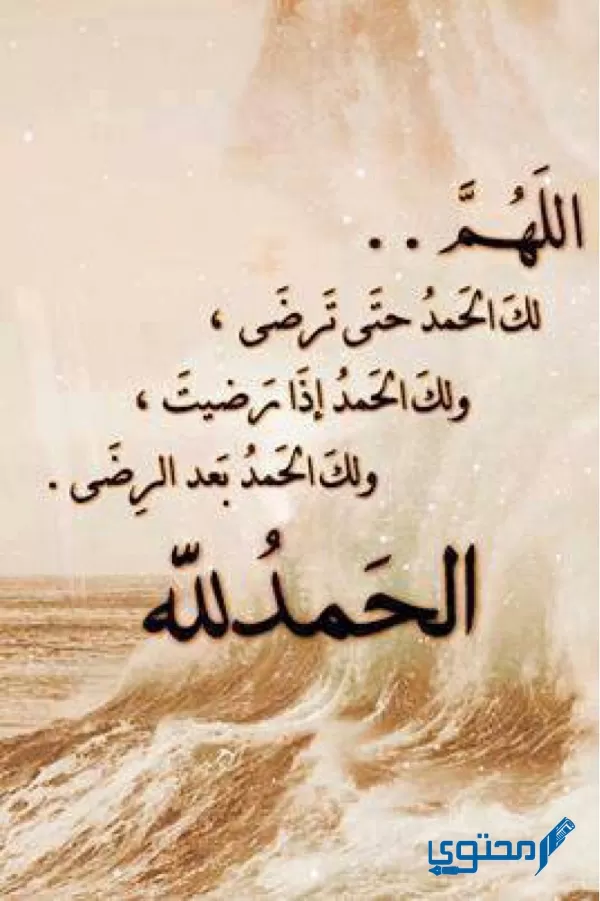 اللَهُمَّ . .
لكَ الحَمدُ حتَى تَرضَى ،
ولكَ الحَمدُ إذَا رَضيتَ ،
ولكَ الحَمدُ بَعد الرِضَى .
الحَمدُ لله
محتوى